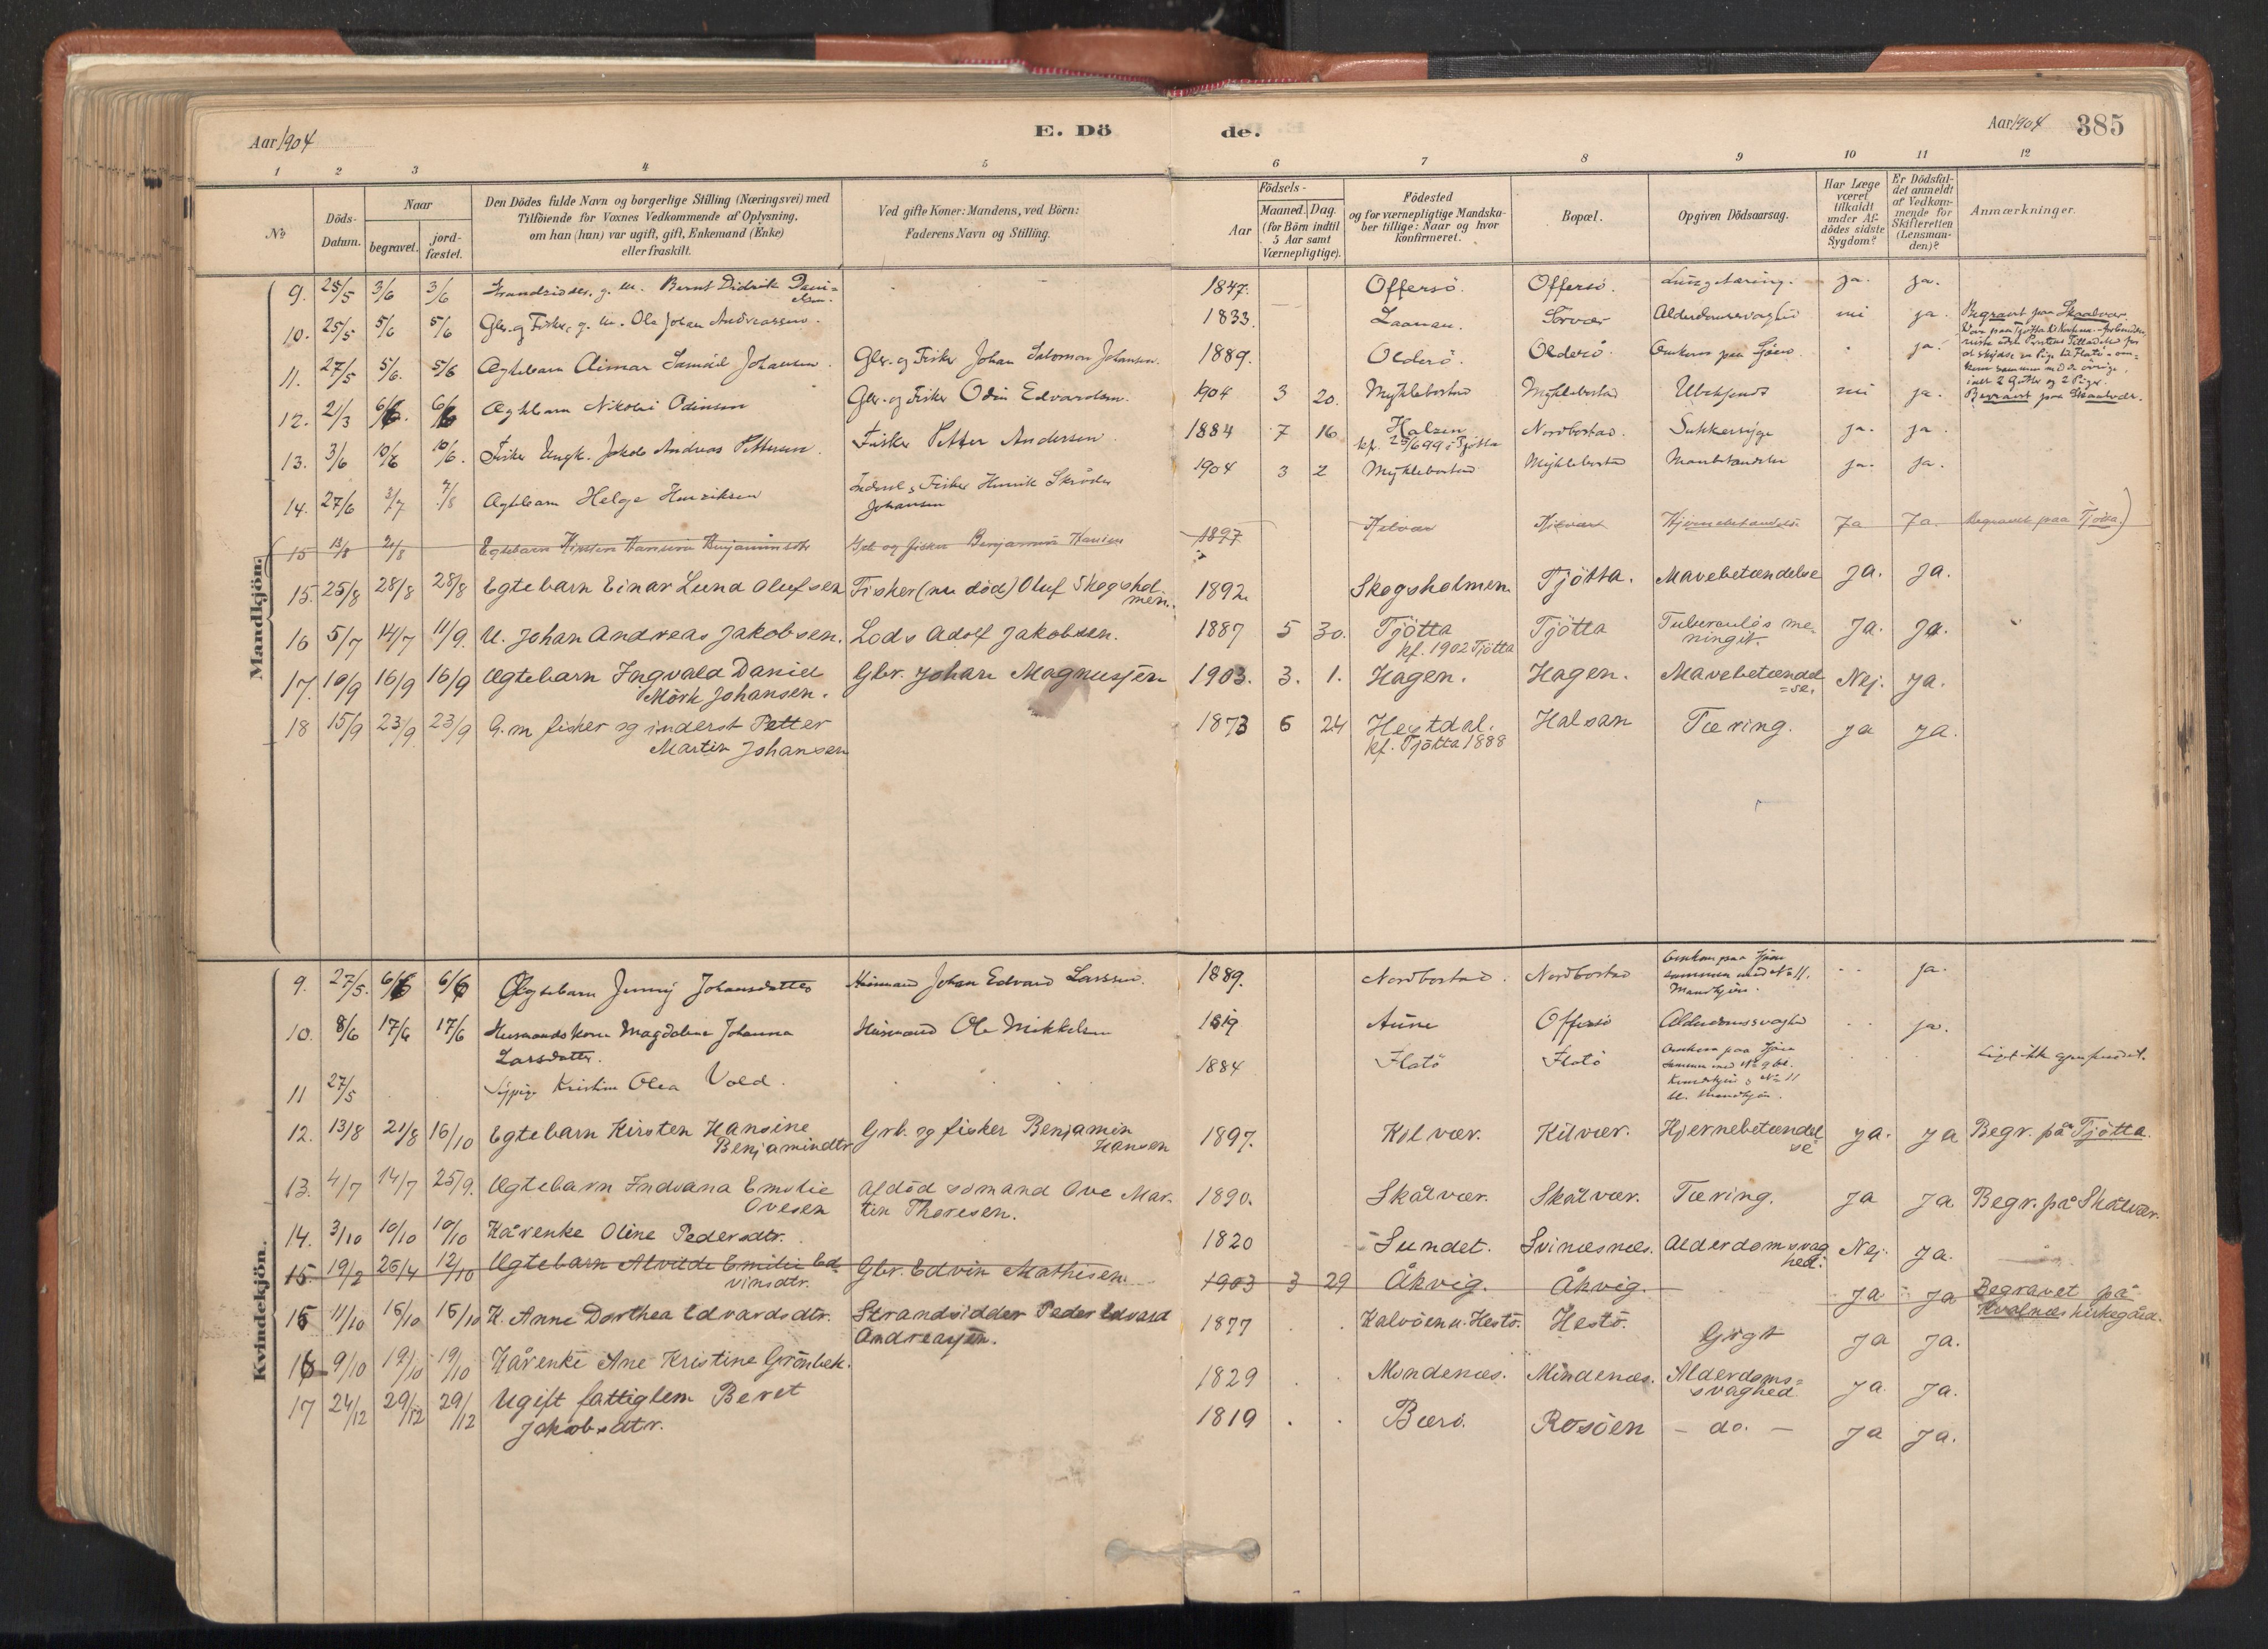 Aar 1904 E. Dö de. Aar 1904 385
1 2 3 4 5 6 7 8 9 10 11 12
No Döds-Datum. Naar begravet. jord-fæstet. Den Dödes fulde Navn og borgerlige Stilling (Næringsvei) med Tilföiende for Voxnes Vedkommende af Oplysning, om han (hun) var ugift, gift, Enkemand (Enke) eller fraskilt. Ved gifte Koner: Mandens, ved Börn: Faderens Navn og Stilling. Födsels- Aar Maaned. Dag. (for Börn indtil 5 Aar samt Værnepligtige). Födested og for værnepligtige Mandska-ber tillige: Naar og hvor Konfirmeret. Bopæl. Opgiven Dödsaarsag. Har Læge været tilkaldt under Af-dödes sidste Sygdom? Er Dödsfal-det anmeldt af Vedkom-mende for Skifteretten (Lensman-den)? Anmærkninger.
Mandkjön.
9. 25/5 3/6 3/6 Strandsidder, g. M. Bernt Didrik Dani=elsen. 1847. Offersö. Offersö. Lungetæring. ja. ja.
10. 25/5 5/6 5/6 Gbr. og Fisker, g. M. Ole Johan Andreassen. 1833. Sörvær Alderdomssvaghed nei ja. Begravt paa Skaalvær.
11. 27/5 5/6. 5/6 Ægtebarn Johansen. Gbr. og Fisker Johan Salomon Johansen. 1889. Olderö. Olderö. Omkom paa Sjøen. ja.
12. 2/3 6/6. 6/6 Ægtebarn Nikolai Odinsen Gbr. og Fisker Odin Edvardsen. 1904 3 20. Myklebostad Myklebostad Ubekjendt nei ja. Begravt paa Skaalvær.
13. 3/6 10/6 10/6. Fisker Ungk. Jakob Andreas Pettersen. Fisker Petter Andersen 1884 7 16 Halsen kf. 25/6 99 i Tjötta Nordbostad. Sukkersyge ja. ja.
14. 27/6 3/7 7/8 Ægtebarn Helge Henriksen Inders. & Fisker Henrik Skröder Johansen 1904 3 2 Myklebostad Myklebostad ja. ja.
15 13/8 21/8 Egtebarn Kirsten Hansine Benjaminsdtr Gbr og fisker Benjamin Hansen 1897 Kilvær Kilvær Hjernebetændelse Ja Ja. Begravet paa Tjötta.)
15. 25/8 28/8 28/8 Egtebarn Einar Lund Olufsen Fisker (nu död) Oluf Skogshol men. 1892. Skogsholmen Tjötta. Mavebetændelse Ja. Ja.
16 5/7 14/7 11/9. U. Johan Andreas Jakobsen. Lods Adolf Jakobsen. 1887 5 30. Tjötta kf. 1902 Tjötta Tjötta Tuberculös me-ningit. Ja. Ja.
17. 10/9 16/9 16/9 Ægtebarn Ingvald Daniel Mörk Johansen. Gbr. Johan Magnussen 1903. 3. 1. Hagen. Hagen. Mavebetændel=se. Nej. Ja.
18 15/9 23/9 23/9 G. m fisker og inderst Petter Martin Johansen 1873 6 24 Heytdal. kf. Tjötta 1888 Halsan Tæring. Ja Ja.
Kvindekjön.
9. 27/5. 6/6 6/6 Ægtebarn Jenny Johansdatter Huusmand Johan Edvard Larssen. 1889. Nordbostad. Nordbostad Omkom paa Sjøen sammen med No 11. Mandkjøn. ja.
10. 8/6 17/6 17/6 Husmandskone Magdalena Johanna Larsdatter. Husmand Ole Mikkelsen 1819 Aune Offersö Alderdomssvaghed ja.
11 27/5 Kristine Olea Vold. 1884 Flatö Flatö Omkom paa Sjøen sammen med No 9 bl. Kvindekjøn & No 11 bl. Mandkjön. Liget ikke gjenfundet.
12. 13/8 21/8 16/10 Egtebarn Kirsten Hansine Benjamindtr Grb. og fisker Benjamin Hansen 1897. Kilvær. Kilvær. Hjernebetændel se Ja. Ja Begr. på Tjötta.
13. 4/7 14/7 25/9. Ægtebarn Indiana Emilie Ovesen Afdöd sömand Ove Mar-tin Thoresen. 1890. Skålvær. Skålvær. Tæring. Ja Ja Begr. på Skålvær.
14. 3/10 10/10 10/10 Kårenke Oline Pedersdtr. 1820 Sundet. Svinæsnæs. Alderdomsvag hed. Nej. Ja.
15. 19/2 26/4 12/10 Ægtebarn Alvilde Emilie Ed-vinsdtr. Gbr. Edvin Mathisen. 1903 3 29 Åkvig. Åkvig. Ja Ja Begravet på Kvalnæs kirkegård.
15 11/10 15/10 15/10 K. Anne Dorthea Edvardsdtr. Strandsidder Peder Edvard Andreassen. 1877 Kalvöen u. Hestö. Hestö. Gigt Ja Ja.
16 9/10 19/10 19/10 Kårenke Ane Kristine Grönbek. 1829 Mindenæs. Mindenæs. Alderdoms=svaghed Ja. Ja.
17 24/12 29/12 29/12 Ugift fattiglem Beret Jakobsdtr. 1819 Bærö. Rosöen - do. - Ja Ja.